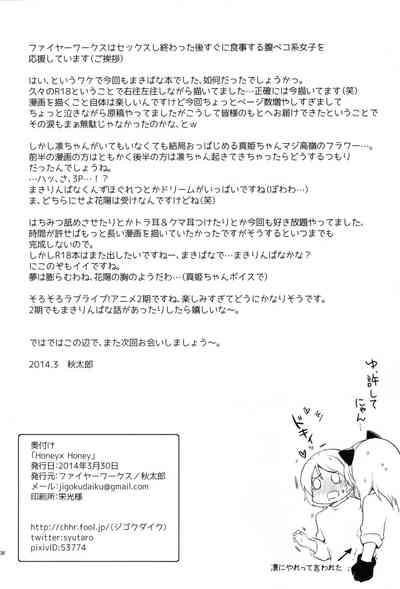 ファイヤーワークスはセックスし終わった後すぐに食事する腹ペコ系女子を
応援しています(ご挨拶)
はい、というワケで今回もまきぱな本でした、如何だったでしょうかっ。
久々のR18ということで右往左往しながら描いてました…正確には今描いてます(笑)
漫画を描くこと自体は楽しいんですけど今回ちょっとページ数増やしすぎまして
ちょっと泣きながら原稿やってましたがこうして皆様のもとへお届けできたということで
その涙もまぁ無駄じゃなかったのかな、とw
しかし凛ちゃんがいてもいなくても結局おっぱじめる真姫ちゃんマジ高嶺のフラワー…。
前半の漫画の方はともかく後半の方は凛ちゃん起きてきちゃったらどうするつもり
だったんでしょうね。
…ハッ、さ、3P…!?
まきりんぱなくんずほぐれつとかドリームがいっぱいですね(ぽわわ…)
ま、どちらにせよ花陽は受けなんですけどね(笑)
はちみつ舐めさせたりとかトラ耳&クマ耳つけたりとか今回も好き放題やってました、
時間が許せばもっと長い漫画に描いていたかったですがそうするといつまでも
完成しないので。
しかしR18本はまた出したいですねー、まきぱなで…まきりんぱなかな?
にこのぞもイイですね。
夢は膨らむわね、花陽の胸のようだわ…(真姫ちゃんボイスで)
そろそろラブライブ!アニメ2期ですね、楽しみすぎてどうにかなりそうです。
2期でもまきりんぱなな話があったりしたら嬉しいな〜。
ではではこの辺で、また次回お会いしましょう〜。
2014.3 秋太郎
ゆ、許して
にゃん…
ドキィ
凛にやれって言われた
奥付け
「Honeyx Honey」
発行日:2014年3月30日
発行元:ファイヤーワークス/秋太郎
メール:jigokudaiku@gmail.com
印刷所:栄光様
http://chhr.fool.jp/(ジゴクダイク)
twitter:syutaro
pixivID:53774